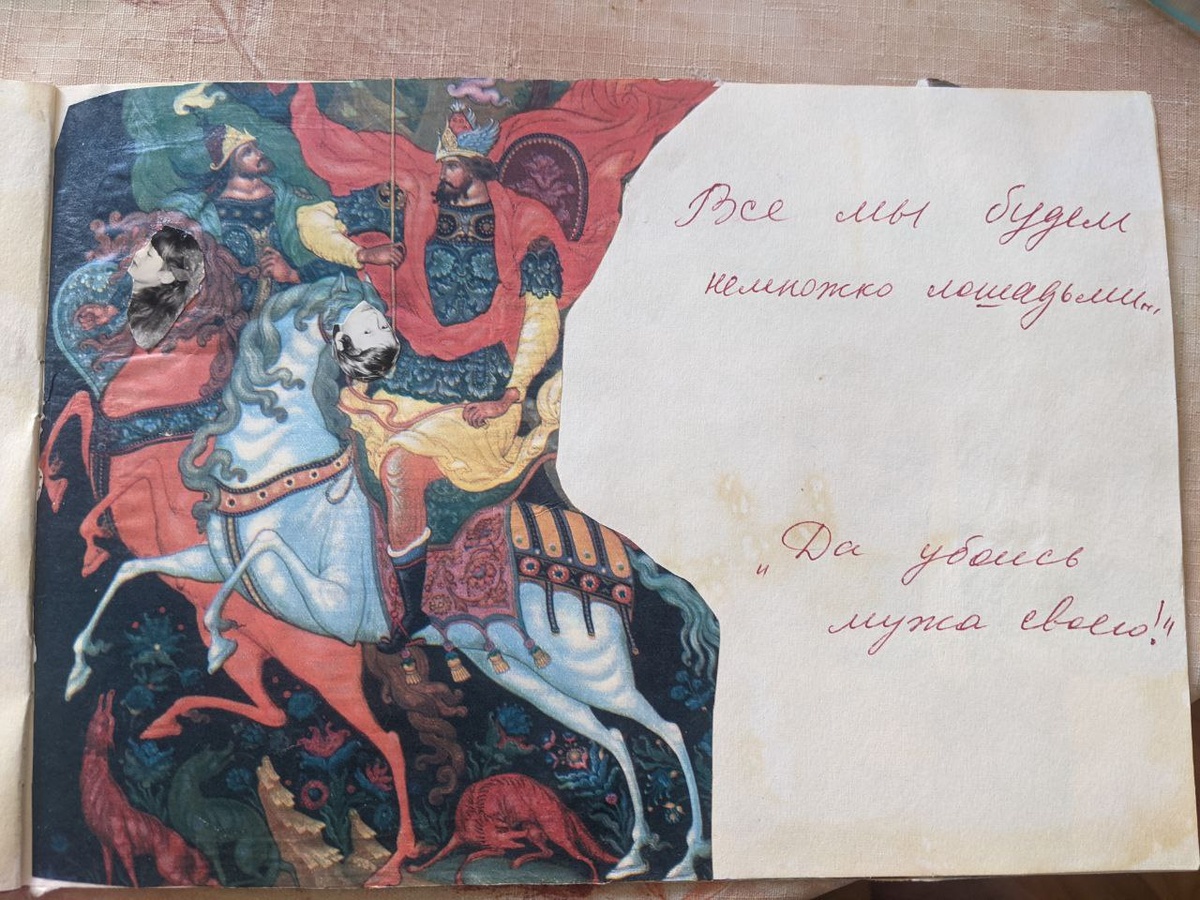 Все мы будем
немножко лошадьми...
„Да убоись
мужа своего!"